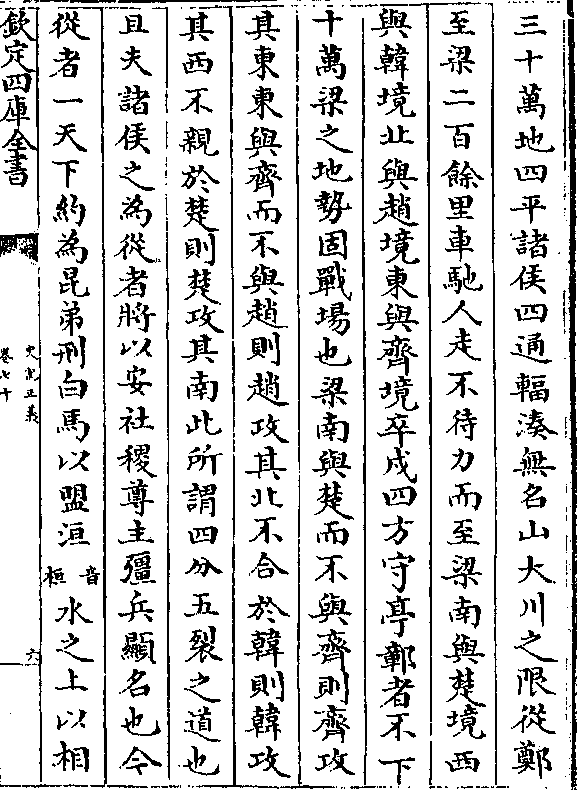 三十萬地四平諸侯四通輻湊無名山大川之限從鄭
至梁二百餘里車馳人走不待力而至梁南與楚境西
與韓境北與趙境東與齊境卒戍四方守亭鄣者不下
十萬梁之地勢固戰場也梁南與楚而不與齊則齊攻
其東東與齊而不與趙則趙攻其北不合於韓則韓攻
其西不親於楚則楚攻其南此所謂四分五裂之道也
且夫諸侯之為從者將以安社稷尊主彊兵顯名也今
從者一天下約為昆弟刑白馬以盟洹音桓水之上以相
欽定四庫全書
史記正義
卷七十
六